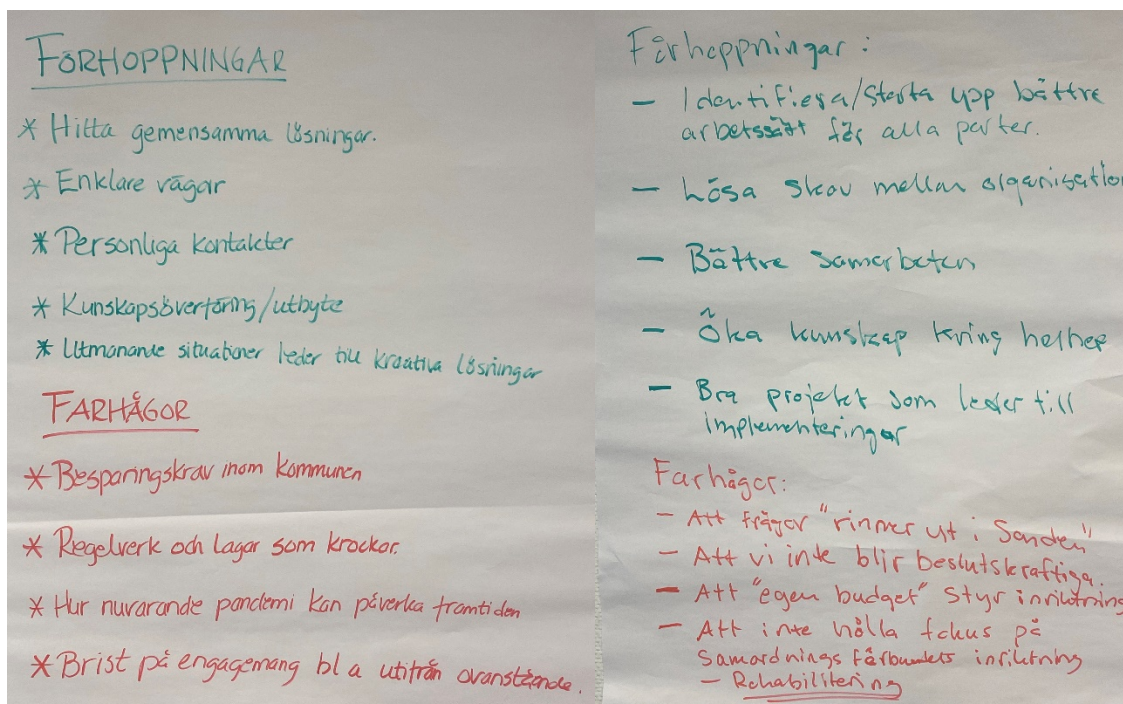 FÖRHOPPNINGAR
* Hitta gemensamma lösningar.
* Enklare vägar
* Personliga kontakter
* Kunskapsöverföring/utbyte
* Utmanande situationer leder till kreativa lösningar
FARHÅGOR
* Besparingskrav inom kommunen
* Regelverk och lagar som krockar.
* Hur nuvarande pandemi kan påverka framtiden
* Brist på engagemang bl a utifrån ovanstående.
Förhoppningar:
- Identifiera/Starta upp bättre
arbetssätt för alla parter.
- Lösa skav mellan organisation
- Bättre samarbeten
- Öka kunskap kring helhet
- Bra projekt som leder till
implementeringar
Farhågor:
- Att frågor "rinner ut i Sanden"
- Att vi inte blir beslutskraftiga.
- Att "egen budget" styr inriktning
- Att inte hålla fokus på
Samordningsförbundets inriktning
- Rehabilitering